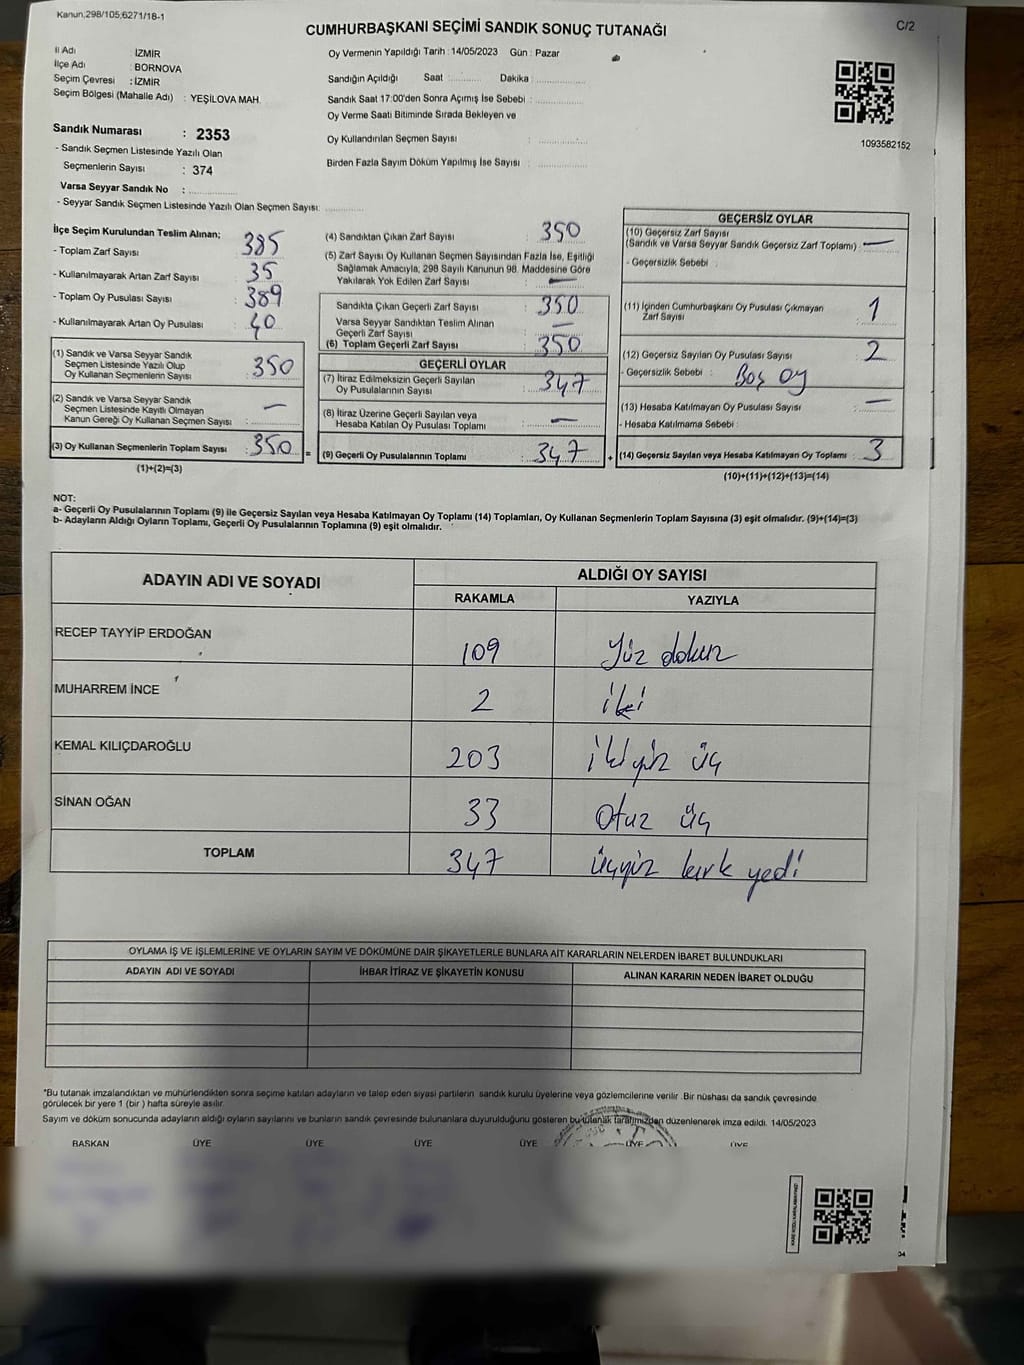 Kanun,298/105,6271/18-1
CUMHURBAŞKANI SEÇİMİ SANDIK SONUÇ TUTANAĞI
C/2
İl Adı : İZMİR
İlçe Adı : BORNOVA
Seçim Çevresi : İZMİR
Seçim Bölgesi (Mahalle Adı) : YEŞİLOVA MAH.
Sandık Numarası : 2353
- Sandık Seçmen Listesinde Yazılı Olan
Seçmenlerin Sayısı : 374
Varsa Seyyar Sandık No :
- Seyyar Sandık Seçmen Listesinde Yazılı Olan Seçmen Sayısı:
Oy Vermenin Yapıldığı Tarih : 14/05/2023 Gün : Pazar
Sandığın Açıldığı Saat : Dakika :
Sandık Saat 17:00'den Sonra Açımış İse Sebebi :
Oy Verme Saati Bitiminde Sırada Bekleyen ve
Oy Kullandırılan Seçmen Sayısı :
Birden Fazla Sayım Döküm Yapılmış İse Sayısı :
1093582152
İlçe Seçim Kurulundan Teslim Alınan;
- Toplam Zarf Sayısı : 385
- Kullanılmayarak Artan Zarf Sayısı : 35
- Toplam Oy Pusulası Sayısı : 389
- Kullanılmayarak Artan Oy Pusulası : 40
(1) Sandık ve Varsa Seyyar Sandık
Seçmen Listesinde Yazılı Olup
Oy Kullanan Seçmenlerin Sayısı : 350
(2) Sandık ve Varsa Seyyar Sandık
Seçmen Listesinde Kayıtlı Olmayan
Kanun Gereği Oy Kullanan Seçmen Sayısı : —
(3) Oy Kullanan Seçmenlerin Toplam Sayısı : 350 =
(1)+(2)=(3)
(4) Sandıktan Çıkan Zarf Sayısı : 350
(5) Zarf Sayısı Oy Kullanan Seçmen Sayısından Fazla İse, Eşitliği
Sağlamak Amacıyla, 298 Sayılı Kanunun 98. Maddesine Göre
Yakılarak Yok Edilen Zarf Sayısı : —
Sandıkta Çıkan Geçerli Zarf Sayısı : 350
Varsa Seyyar Sandıktan Teslim Alınan
Geçerli Zarf Sayısı : —
(6) Toplam Geçerli Zarf Sayısı : 350
GEÇERLİ OYLAR
(7) İtiraz Edilmeksizin Geçerli Sayılan
Oy Pusulalarının Sayısı : 347
(8) İtiraz Üzerine Geçerli Sayılan veya
Hesaba Katılan Oy Pusulası Toplamı : —
(9) Geçerli Oy Pusulalarının Toplamı : 347 +
GEÇERSİZ OYLAR
(10) Geçersiz Zarf Sayısı
(Sandık ve Varsa Seyyar Sandık Geçersiz Zarf Toplamı) : —
- Geçersizlik Sebebi :
(11) İçinden Cumhurbaşkanı Oy Pusulası Çıkmayan
Zarf Sayısı : 1
(12) Geçersiz Sayılan Oy Pusulası Sayısı : 2
- Geçersizlik Sebebi : Boş oy
(13) Hesaba Katılmayan Oy Pusulası Sayısı : —
- Hesaba Katılmama Sebebi :
(14) Geçersiz Sayılan veya Hesaba Katılmayan Oy Toplamı : 3
(10)+(11)+(12)+(13)=(14)
NOT:
a- Geçerli Oy Pusulalarının Toplamı (9) ile Geçersiz Sayılan veya Hesaba Katılmayan Oy Toplamı (14) Toplamları, Oy Kullanan Seçmenlerin Toplam Sayısına (3) eşit olmalıdır. (9)+(14)=(3)
b- Adayların Aldığı Oyların Toplamı, Geçerli Oy Pusulalarının Toplamına (9) eşit olmalıdır.
ADAYIN ADI VE SOYADI
ALDIĞI OY SAYISI
RAKAMLA YAZIYLA
RECEP TAYYİP ERDOĞAN 109 Yüz dokuz
MUHARREM İNCE 2 iki
KEMAL KILIÇDAROĞLU 203 ikiyüz üç
SİNAN OĞAN 33 otuz üç
TOPLAM 347 üçyüz kırk yedi
OYLAMA İŞ VE İŞLEMLERİNE VE OYLARIN SAYIM VE DÖKÜMÜNE DAİR ŞİKAYETLERLE BUNLARA AİT KARARLARIN NELERDEN İBARET BULUNDUKLARI
ADAYIN ADI VE SOYADI İHBAR İTİRAZ VE ŞİKAYETİN KONUSU ALINAN KARARIN NEDEN İBARET OLDUĞU
*Bu tutanak imzalandıktan ve mühürlendikten sonra seçime katılan adayların ve talep eden siyasi partilerin sandık kurulu üyelerine veya gözlemcilerine verilir. Bir nüshası da sandık çevresinde
görülecek bir yere 1 (bir ) hafta süreyle asılır.
Sayım ve döküm sonucunda adayların aldığı oyların sayılarını ve bunların sandık çevresinde bulunanlara duyurulduğunu gösteren bu tutanak tarafımızdan düzenlenerek imza edildi. 14/05/2023
BAŞKAN ÜYE ÜYE ÜYE ÜYE ÜYE ÜYE